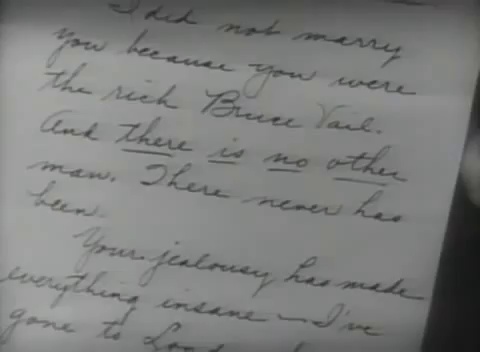 I did not marry
you because you were
the rich Bruce Vail.
And there is no other
man. There never has
been.
Your jealousy has made
everything insane — I've
gone to